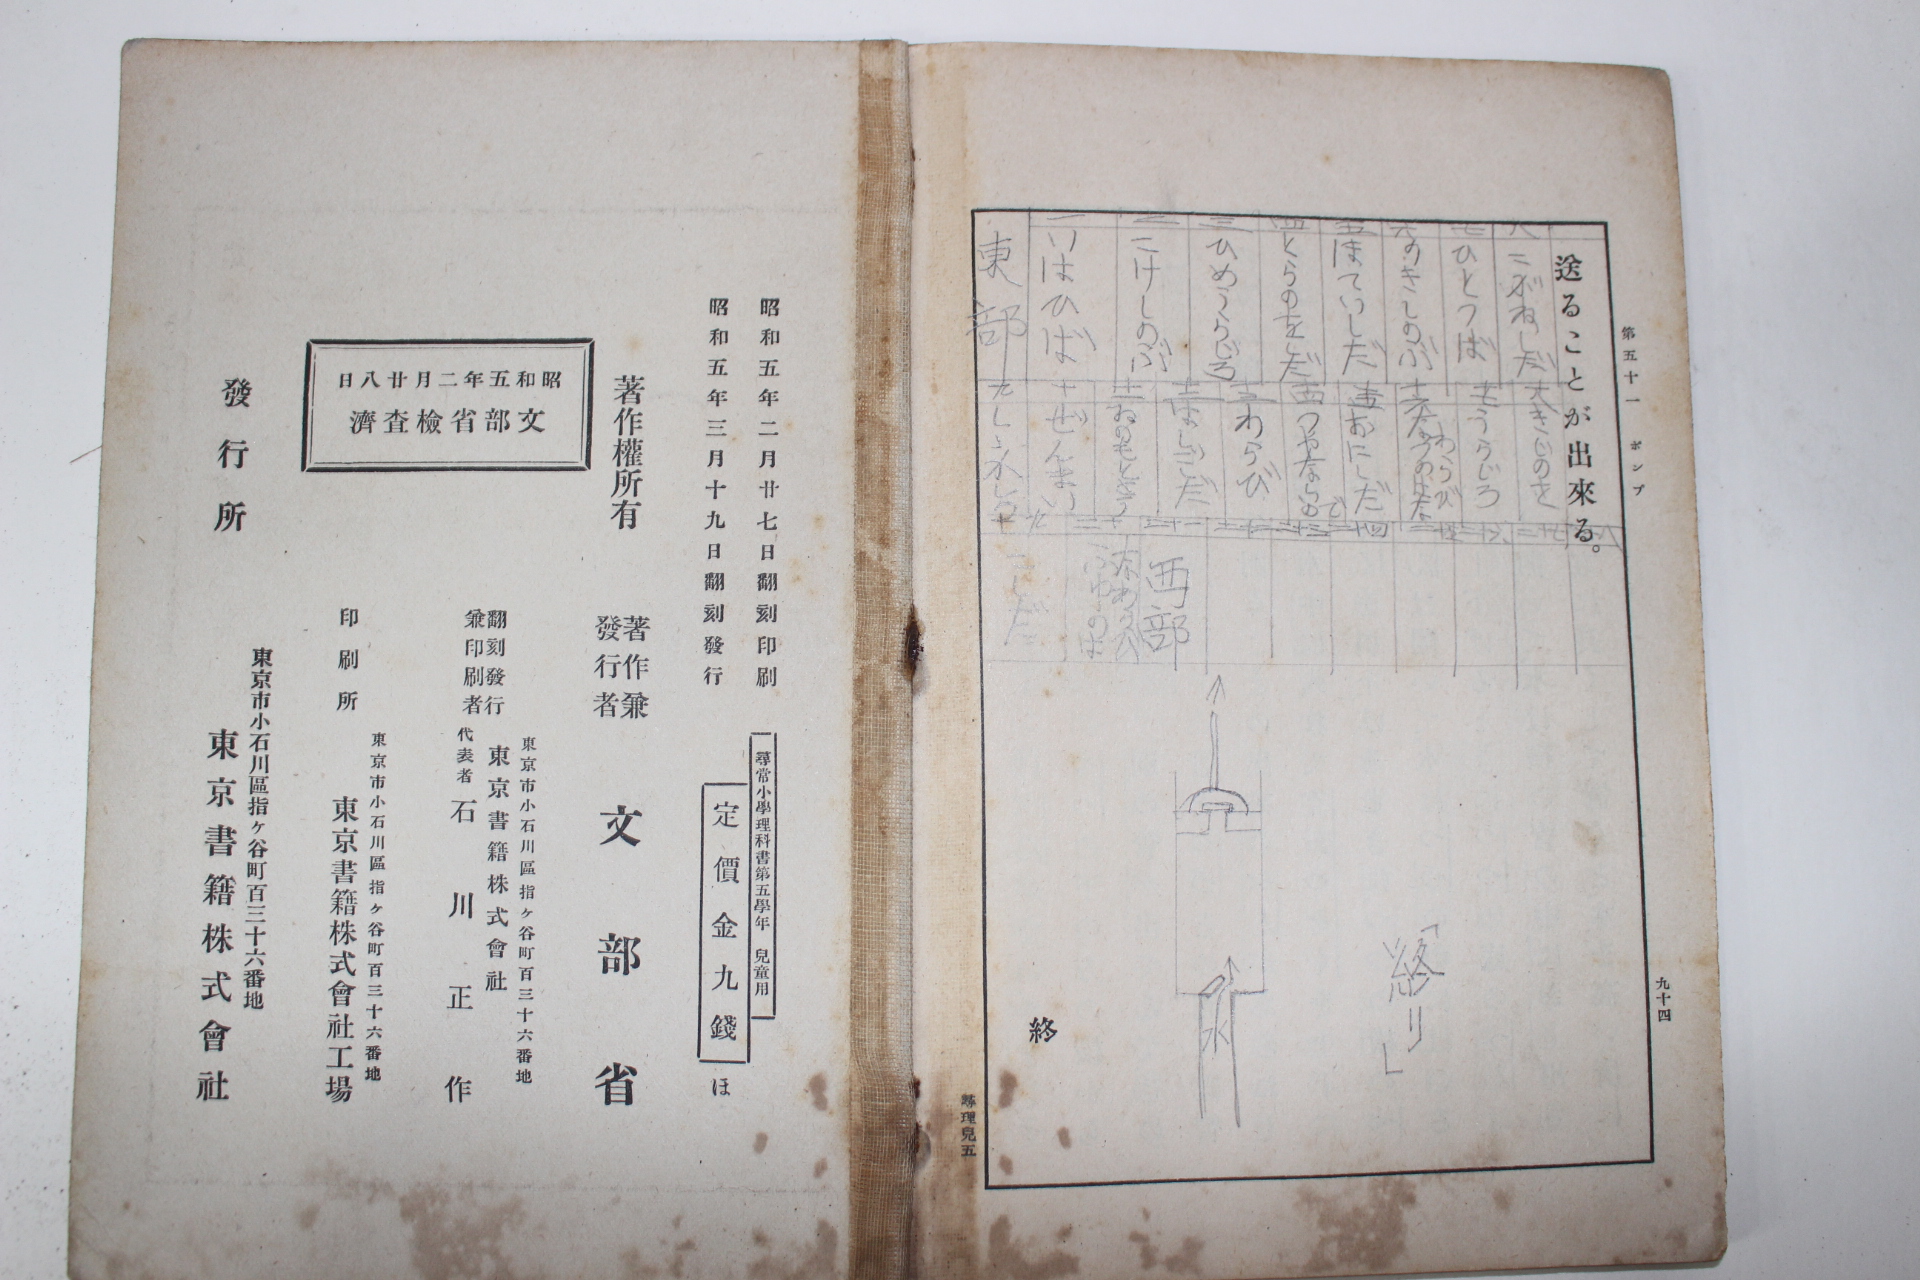 第五十一 ポンプ
九十四
送ることが出來る。
終
尋理兒五
八 こがねしだ
七 ひとつば
六 のきしのぶ
五 ほていしだ
四 とらのをしだ
三 ひめうらじろ
二 こけしのぶ
一 いはひば
東部
大きじのを
うらじろ
おにしだ
わらび
十 ぜんまい
西部
こしだ
水
「終り」
昭和五年二月廿七日翻刻印刷
昭和五年三月十九日翻刻發行
尋常小學理科書第五學年 兒童用
定價金九錢
ほ
著作權所有
著作兼發行者 文部省
昭和五年二月廿八日
文部省檢査濟
翻刻發行兼印刷者
東京市小石川區指ヶ谷町百三十六番地
東京書籍株式會社
代表者 石川正作
印刷所
東京市小石川區指ヶ谷町百三十六番地
東京書籍株式會社工場
發行所
東京市小石川區指ヶ谷町百三十六番地
東京書籍株式會社